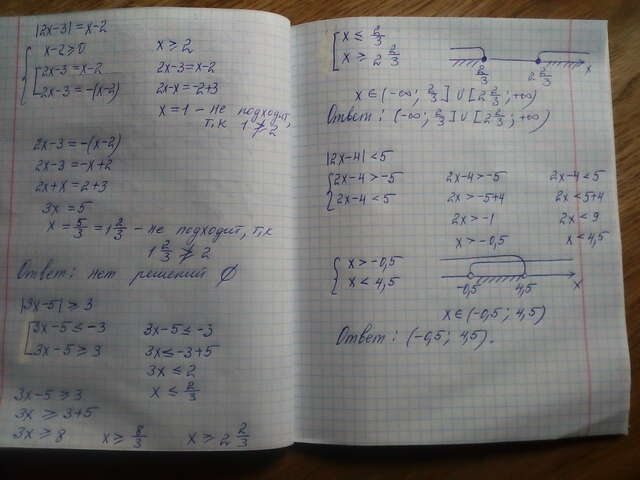 |2x-3| = x-2
x-2≥0 x≥2
2x-3 = x-2 2x-3=x-2
2x-3 = -(x-2) 2x-x=-2+3
x = 1 - не подходит,
т.к 1 ≱ 2
2x-3=-(x-2)
2x-3 = -x+2
2x+x = 2+3
3x = 5
x = 5/3 = 1 2/3 - не подходит, т.к
1 2/3 ≱ 2
Ответ: нет решений ∅
|3x-5| ≥ 3
3x-5 ≤ -3 3x-5 ≤ -3
3x-5 ≥ 3 3x ≤ -3+5
3x ≤ 2
3x-5 ≥ 3 x ≤ 2/3
3x ≥ 3+5
3x ≥ 8 x ≥ 8/3 x ≥ 2 2/3
x ≤ 2/3
x ≥ 2 2/3
2/3 2 2/3 x
x ∈ (-∞; 2/3] ∪ [2 2/3; +∞)
Ответ: (-∞; 2/3] ∪ [2 2/3; +∞)
|2x-4| < 5
2x-4 > -5 2x-4 > -5 2x-4 < 5
2x-4 < 5 2x > -5+4 2x < 5+4
2x > -1 2x < 9
x > -0,5 x < 4,5
x > -0,5
x < 4,5 -0,5 4,5 x
x ∈ (-0,5; 4,5)
Ответ: (-0,5; 4,5).